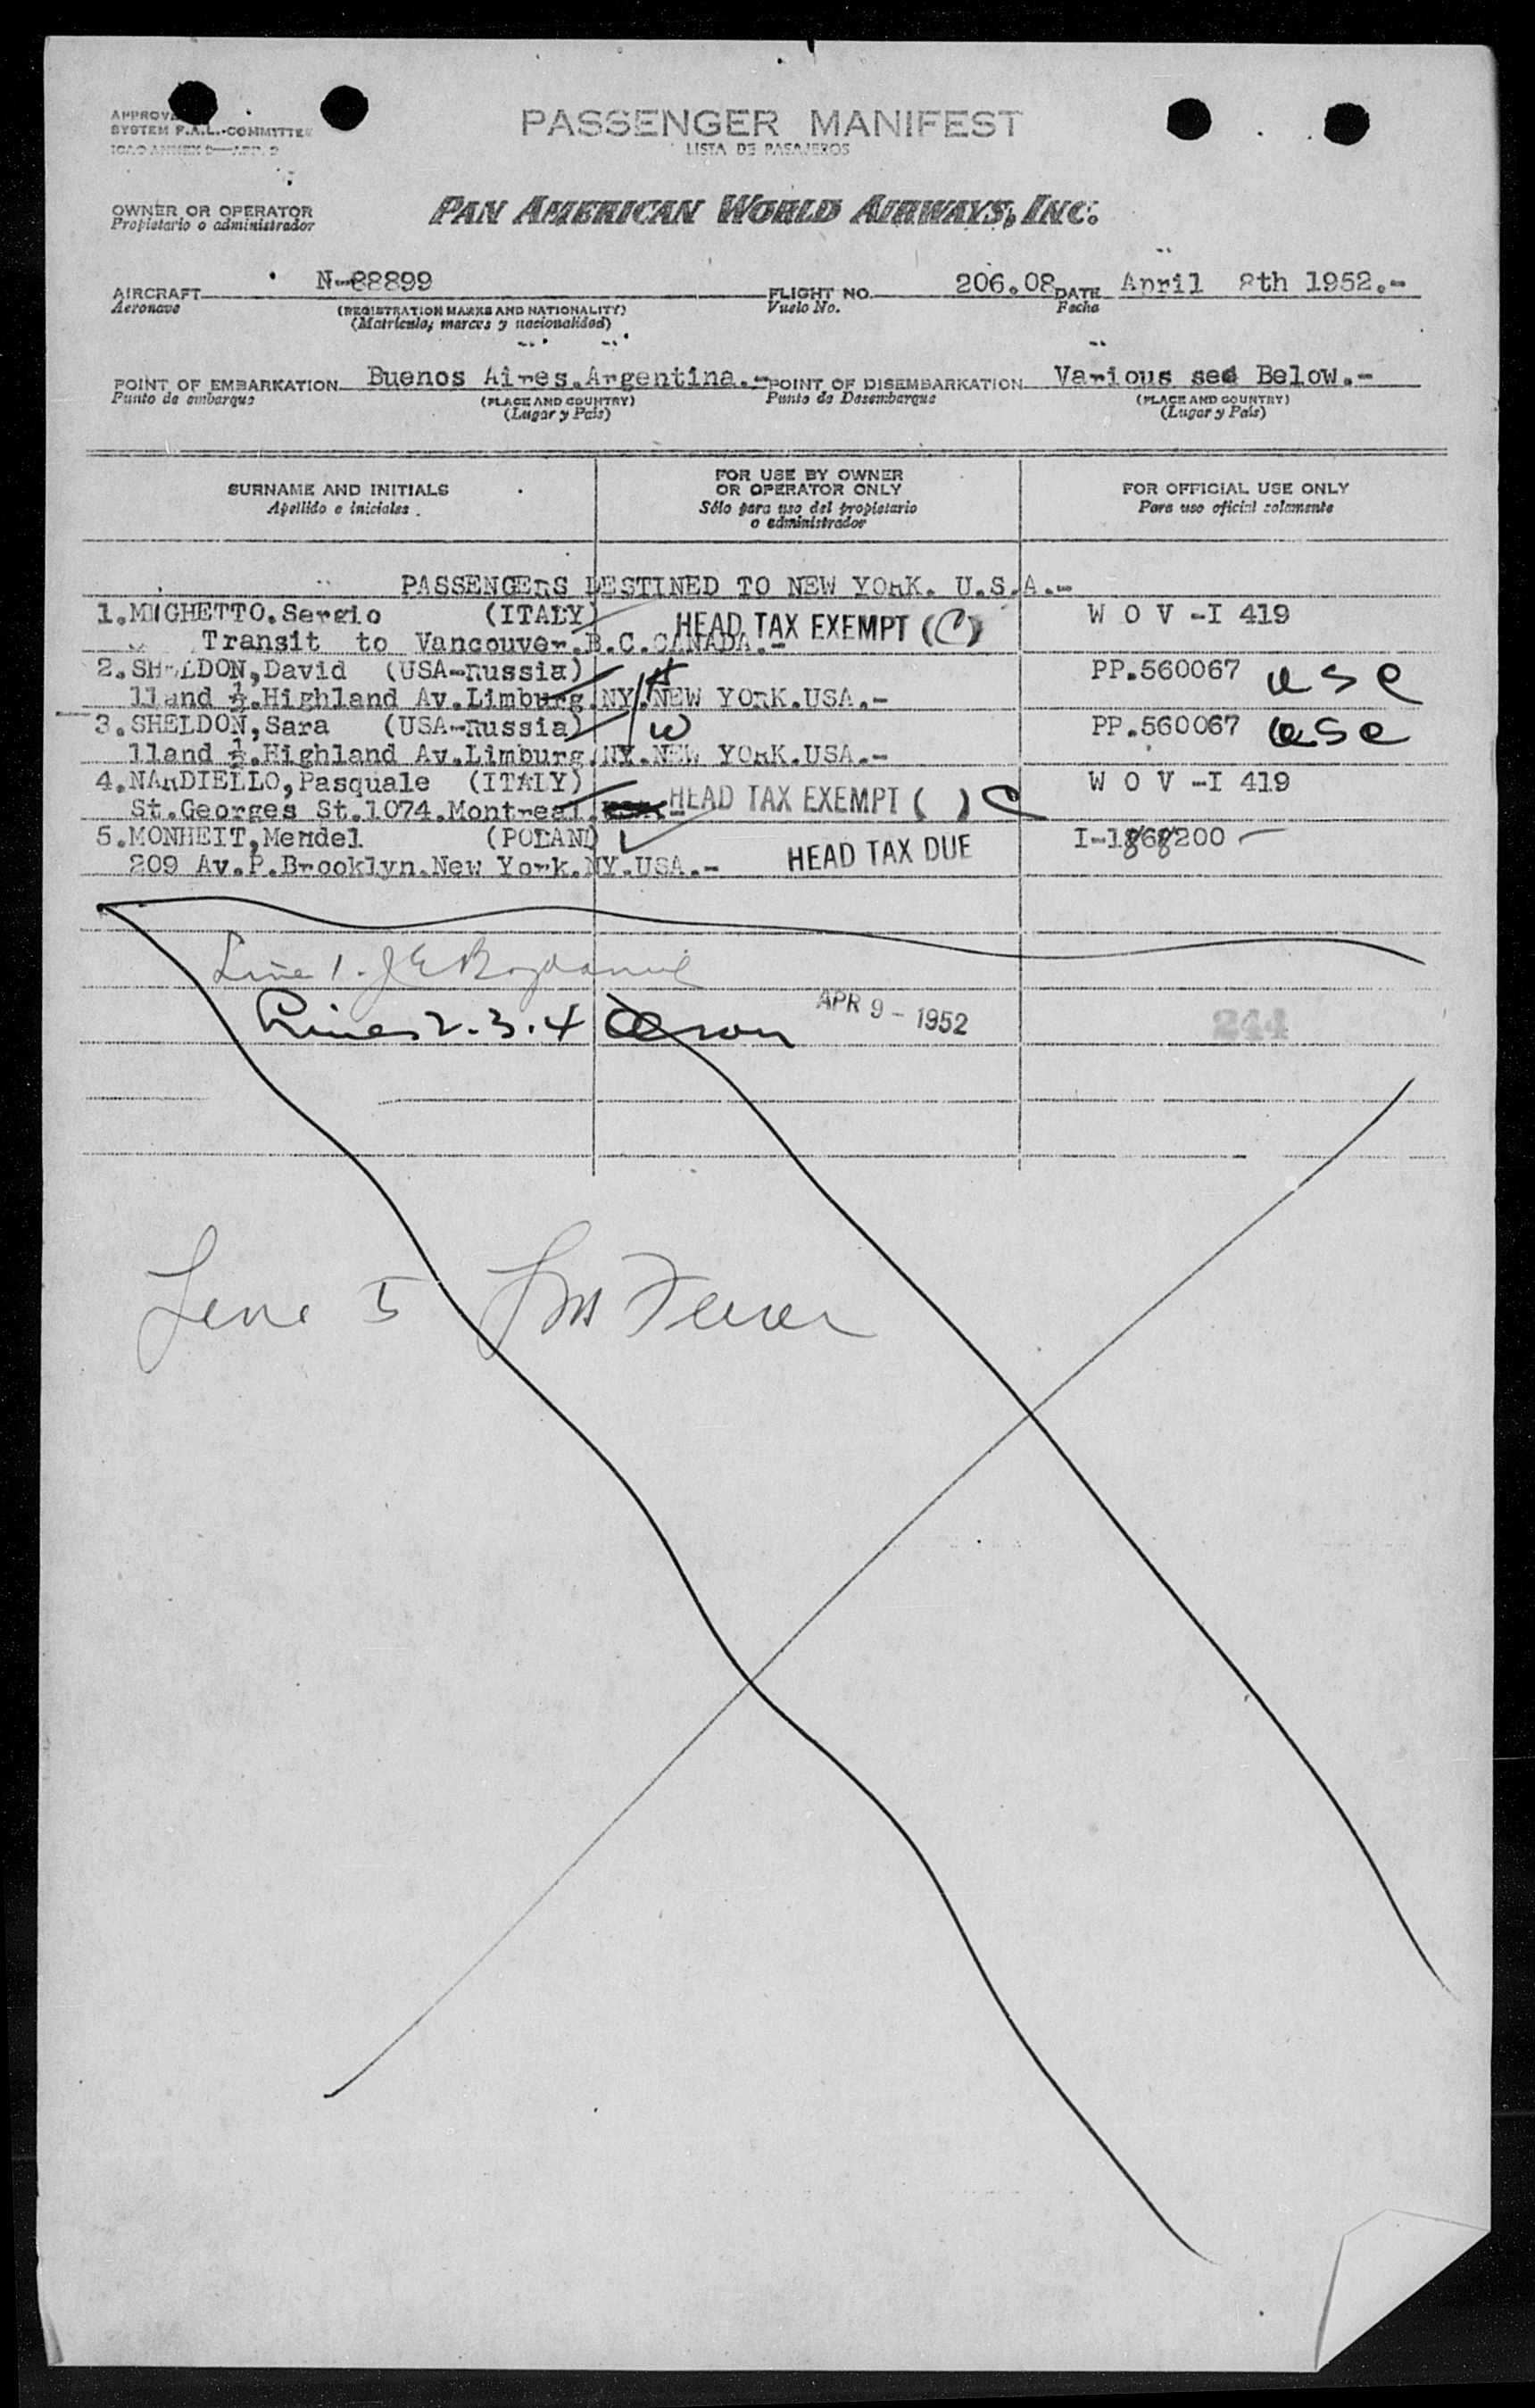 APPROVE
SYSTEM F.A.L. COMMITTEE
ICAO ANNEX 9—APP. 
PASSENGER MANIFEST
LISTA DE PASAJEROS
OWNER OR OPERATOR
Propietario o administrador
PAN AMERICAN WORLD AIRWAYS, INC.
AIRCRAFT N-88899 FLIGHT NO. 206.08 DATE April 8th 1952.-
Aeronave Vuelo No. Fecha
(REGISTRATION MARKS AND NATIONALITY)
(Matrícula, marcas y nacionalidad)
POINT OF EMBARKATION Buenos Aires.Argentina.- POINT OF DISEMBARKATION Various see Below.-
Punto de embarque (PLACE AND COUNTRY) Punto de Desembarque (PLACE AND COUNTRY)
(Lugar y País) (Lugar y País)
SURNAME AND INITIALS FOR USE BY OWNER OR OPERATOR ONLY FOR OFFICIAL USE ONLY
Apellido e iniciales Sólo para uso del propietario o administrador Para uso oficial solamente
PASSENGERS DESTINED TO NEW YORK. U.S.A.-
1. Sergio (ITALY) HEAD TAX EXEMPT (C) W O V -I 419
Transit to Vancouver.B.C.CANADA.-
2.SHELDON,David (USA-Russia) PP.560067 usc
11and ½.Highland Av.Limburg.NY.NEW YORK.USA.-
3.SHELDON,Sara (USA-Russia) W PP.560067 usc
11and ½.Highland Av.Limburg.NY.NEW YORK.USA.-
4.NARDIELLO,Pasquale (ITALY) W O V -I 419
St.Georges St.1074.Montreal. HEAD TAX EXEMPT ( ) C
5.MONHEIT,Mendel (POLAND) I-1868200
209 Av.P.Brooklyn.New York.NY.USA.- HEAD TAX DUE
Line 1.
Lines 2.3.4 APR 9 - 1952 244
Line 5